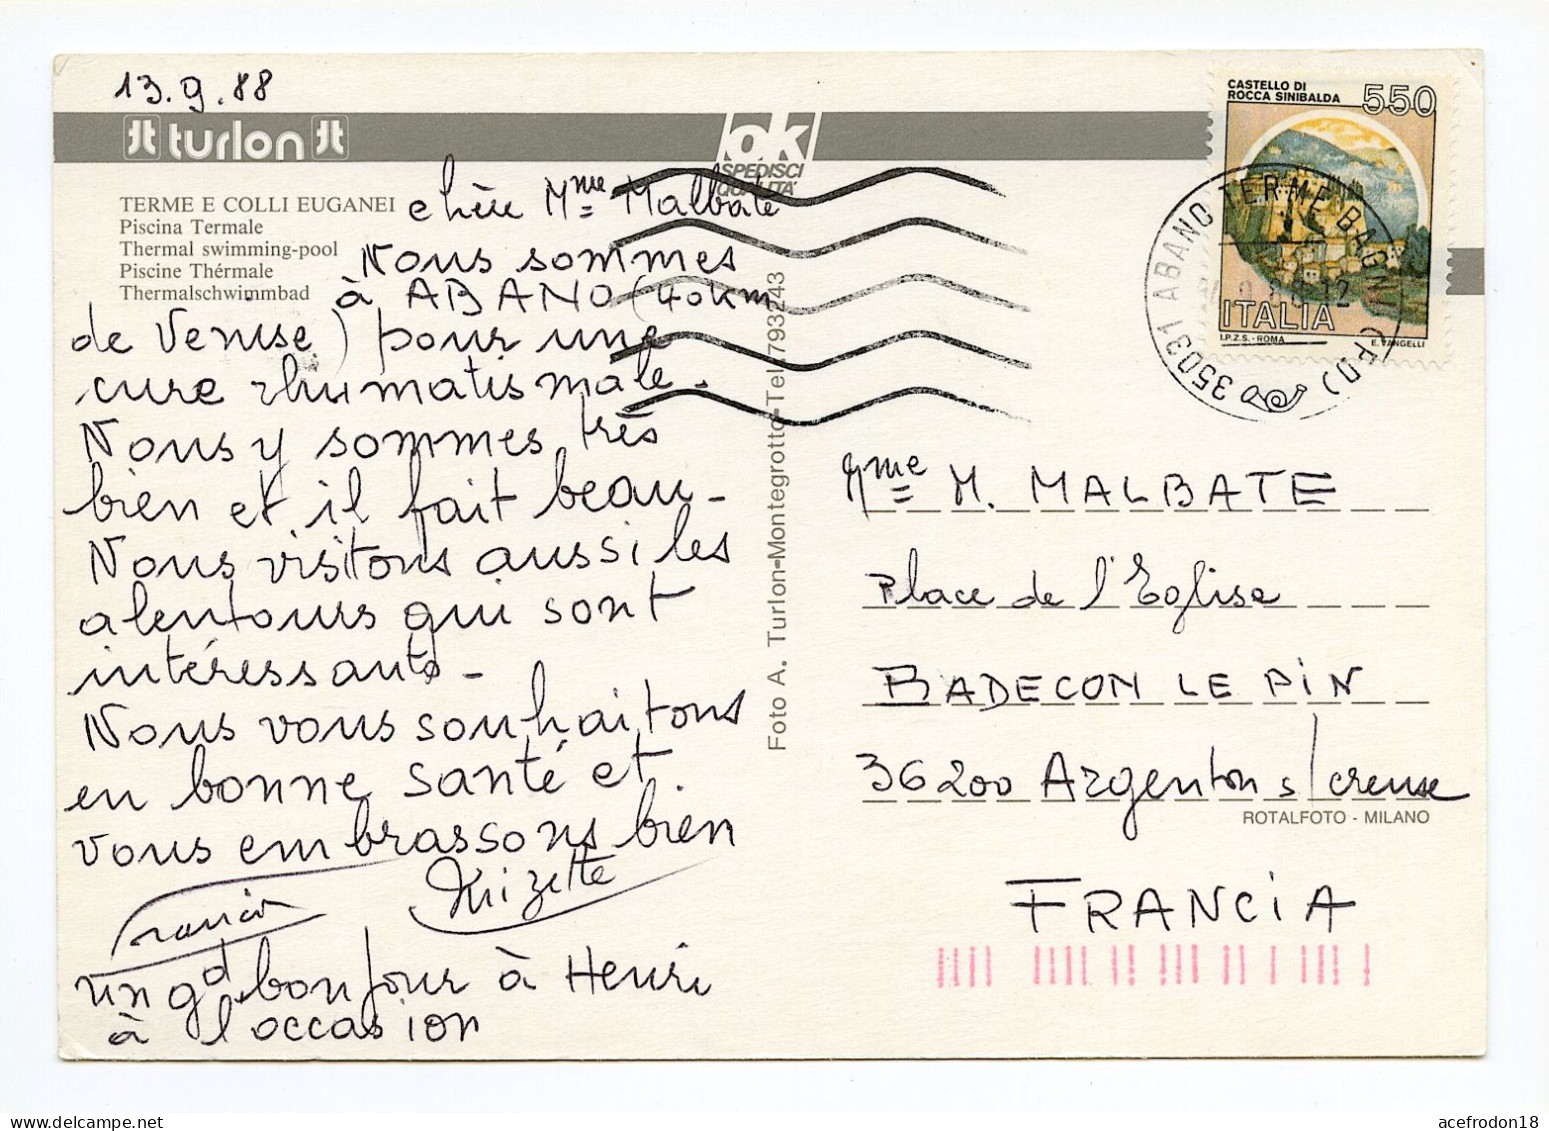 13.9.88
turlon
ok
SPEDISCI
QUALITA'
TERME E COLLI EUGANEI
Piscina Termale
Thermal swimming-pool
Piscine Thérmale
Thermalschwimmbad
chère Mme Malbate
Nous sommes
à ABANO (40km
de Venise) pour une
cure rhumatismale.
Nous y sommes très
bien et il fait beau -
Nous visitons aussi les
alentours qui sont
intéressants -
Nous vous souhaitons
en bonne santé et
vous embrassons bien
Francis
un gd bonjour à Henri
à l'occasion
Foto A. Turlon-Montegrotto-Tel. 793243
CASTELLO DI
ROCCA SINIBALDA
550
ITALIA
I.P.Z.S. - ROMA
E. VANGELLI
35031 ABANO TERME BAGNI (PD)
Mme M. MALBATE
Place de l'Eglise
BADECON LE PIN
36200 Argenton s/creuse
ROTALFOTO - MILANO
FRANCIA
acefrodon18